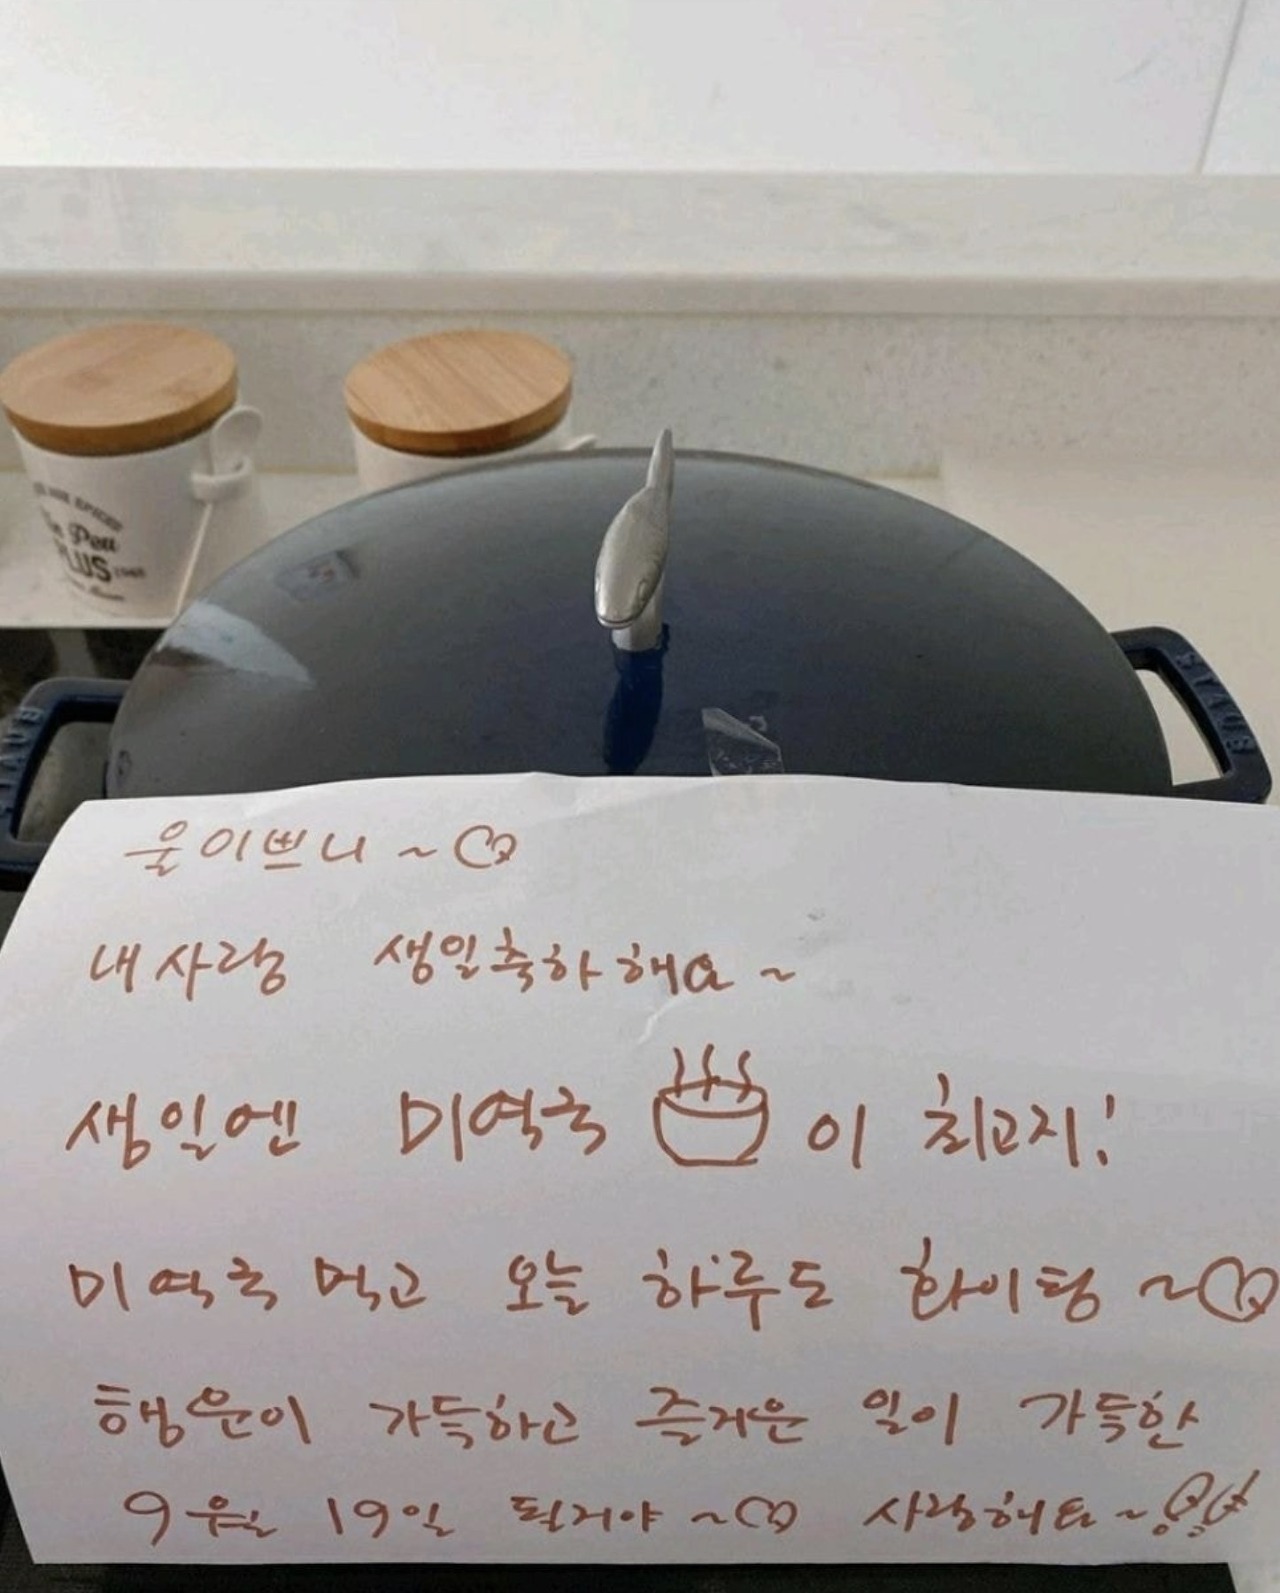 Le Peu
PLUS
STAUB
STAUB
울이쁘니~♡
내사랑 생일축하해요~
생일엔 미역국 이 최고지!
미역국 먹고 오늘 하루도 화이팅~♡
행운이 가득하고 즐거운 일이 가득한
9월 19일 될거야~♡ 사랑해요~♡♡